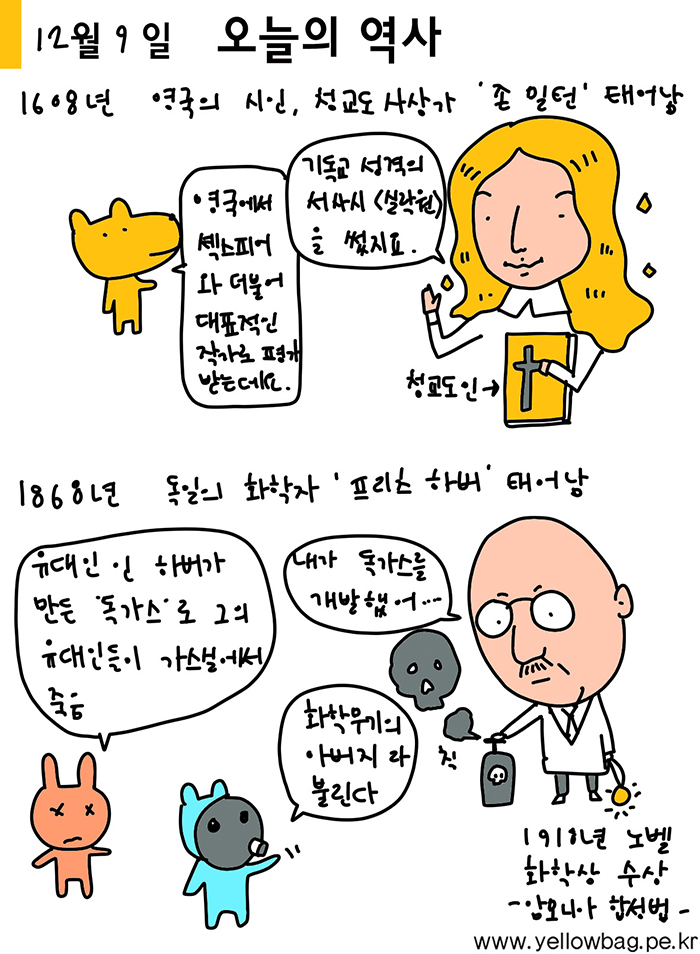 12월 9일 오늘의 역사
1608년 영국의 시인, 청교도 사상가 '존 밀턴' 태어남
영국에서
셱스피어
와 더불어
대표적인
작가로 평가
받는데요.
기독교 성격의
서사시 <실락원>
을 썼지요.
청교도인→
1868년 독일의 화학자 '프리츠 하버' 태어남
유대인 인 하버가
만든 '독가스'로 그의
유대인들이 가스실에서
죽음
내가 독가스를
개발했어...
화학무기의
아버지 라
불린다
칙
1918년 노벨
화학상 수상
-암모니아 합성법-
www.yellowbag.pe.kr